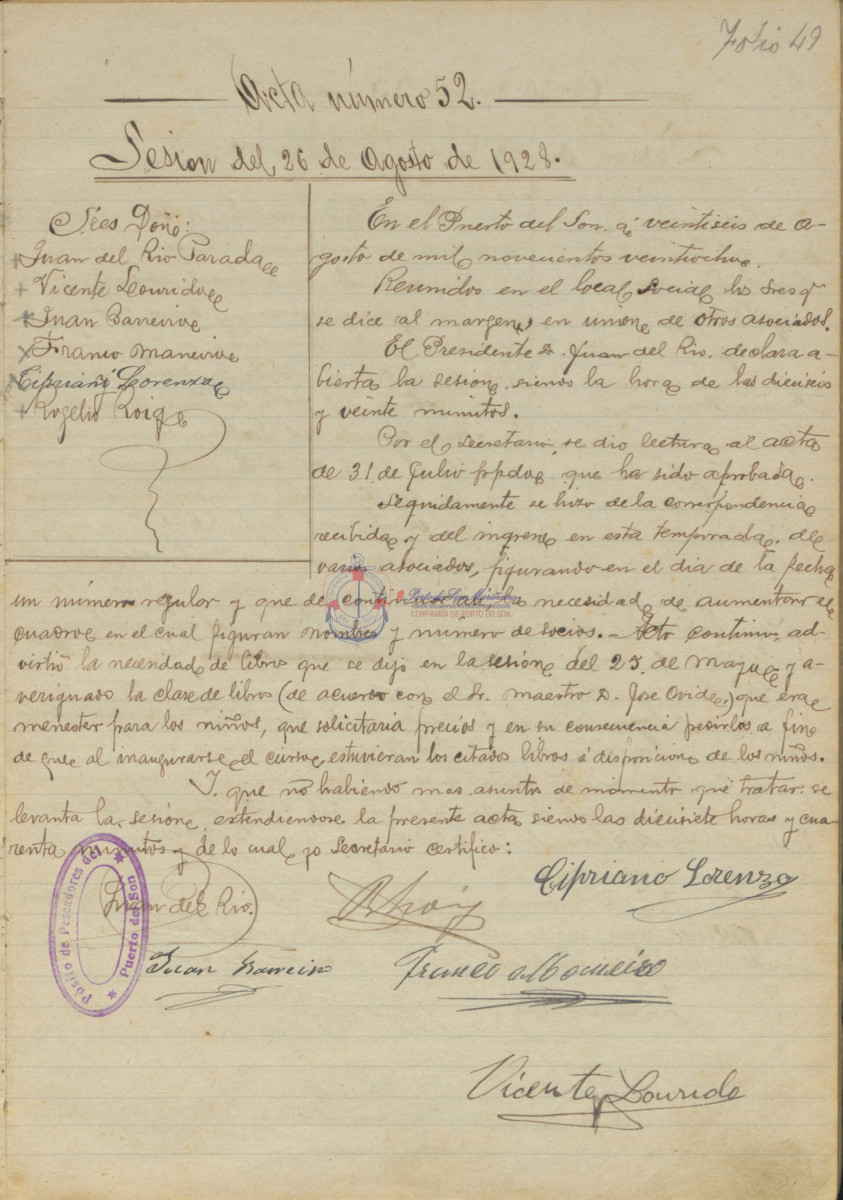 Folio 49
Acta número 52.
Sesion del 26 de Agosto de 1928.
Sres Doño:
Juan del Rio Parada
Vicente Lourido
Juan Barreiro
Franco Maneiro
Cipriano Lorenzo
Rogelio Roig
En el Puerto del Son á veintiseis de A-
gosto de mil novecientos veintiocho.
Reunidos en el local social los Sres q
se dice al margen, en union de otros asociados.
El Presidente D. Juan del Rio. declara a-
bierta la sesion siendo la hora de las dieciseis
y veinte minutos.
Por el Secretario, se dio lectura al acta
de 31 de Julio ppdo. que ha sido aprobada.
Seguidamente se hizo de la correspondencia
recibida y del ingreso en esta temporada, de
varios asociados, figurando en el dia de la fecha
un número regular y que de necesidad de aumentar el
cuadro en el cual figuran nombres y número de socios. - Acto continuo ad-
virtió la necesidad de libros que se dijo en la sesion del 25 de Mayo y a-
veriguado la clase de libros (de acuerdo con el Sr. maestro D. José Ovide,) que era
menester para los niños, que solicitaria precios y en su consecuencia pedirlos a fin
de que al inaugurarse el curso, estuvieran los citados libros á disposicion de los niños.
Y que no habiendo mas asuntos de momento que tratar se
levanta la sesion, extendiendose la presente acta siendo las diecisiete horas y cua-
renta minutos y de lo cual yo Secretario certifico:
Cipriano Lorenzo
Juan del Rio.
R Roig
Juan Barreiro
Franco Maneiro
Vicente Lourido
Pósito de Pescadores del
Puerto del Son
CONFRARÍA DE PORTO DO SON